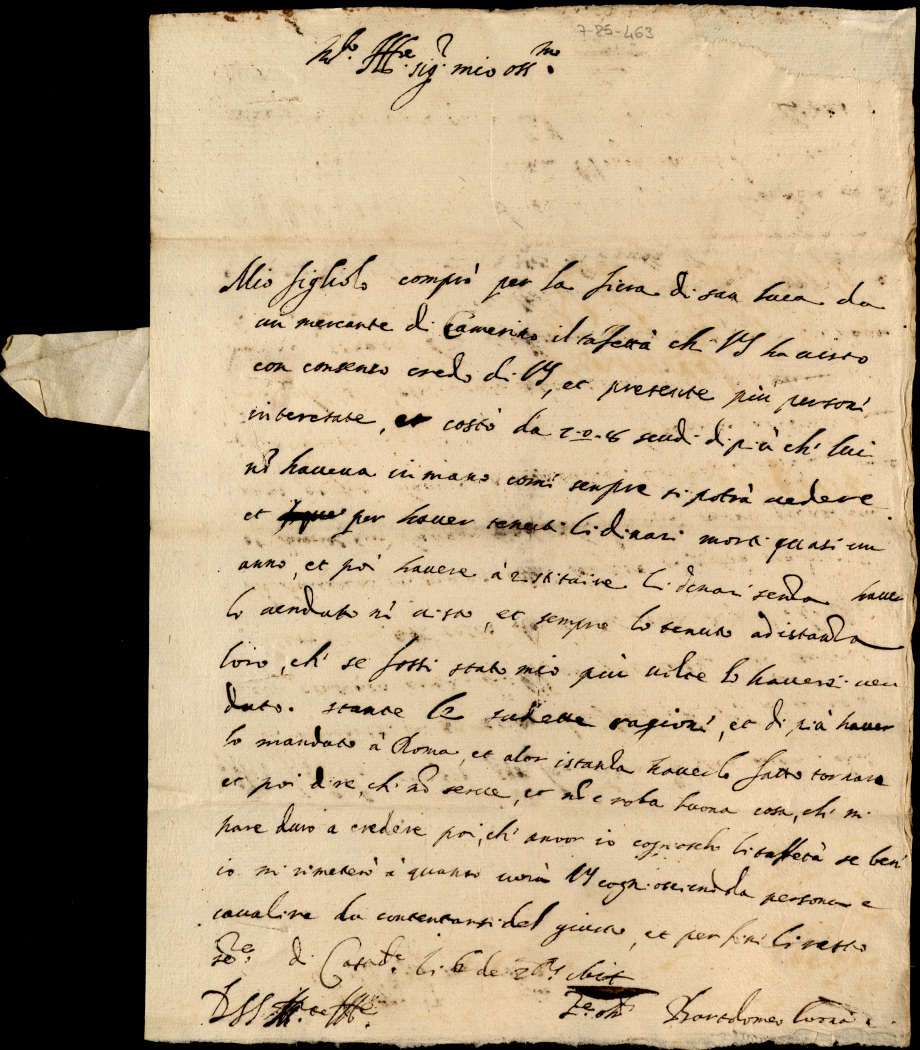 7-85-463
sig.r mio oss.mo
Mio figliolo comprò per la fiera di san luca da
un mercante di Camerino il tafettà ch' VS ha visto
con consenso credo di VS, et presente più personi
interetate, et costò da 7-0-8 scudi di più ch' lui
nō haveva in mano comi senpre si potrà vedere
et per haver tenuti li dinari morti quasi un
anno, et poi havere à ristituire li denari senza haver
lo venduto ni visto, et sempre lo tenuto ad istanza
loro, ch' se fossi stato mio più volte lo haverei ven
duto. stante le sudette ragioni, et di più haver
lo mandato à Roma, et alor istanza haverlo fatto tornare
et poi dire, ch' nō serve, et nō è roba buona cosa, ch' mi
pare duro a credere poi, ch' ancor io cognosco li taffetà se beni
io mi rimeterò à quanto vorrà VS cognioscendola persona e
cavaliere da contentarsi del giusto, et per fini li resto
se.re di li 6 de
D VS
Bartolomeo